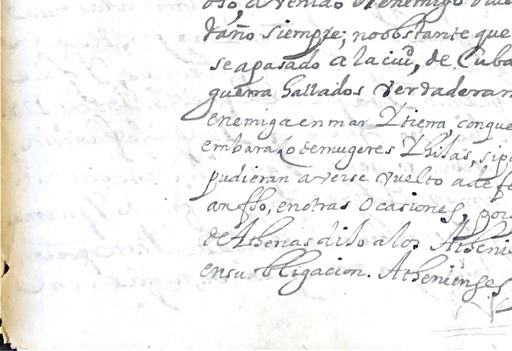 oso, a venido el enemigo
daño siempre; no obstante que
se a pasado a la ciuᵈ, de Cuba
guerra hallados verdaderam
enemiga en mar Y tierra, con que
embarazo de mugeres Y hijas, si p
pudieran averse vuelto a de fe
an sso, en otras Ocasiones, por
de Athenas dijo a los Athenie
en su obligacion. Athenienses